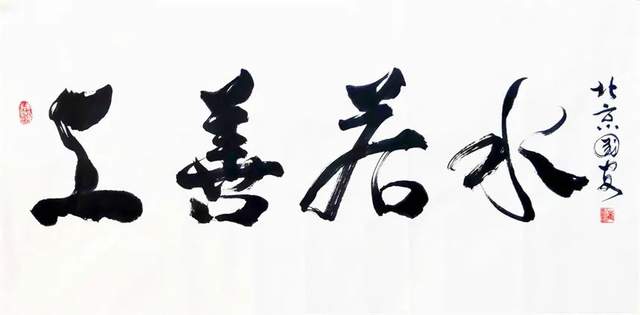 上善若水
北京國安